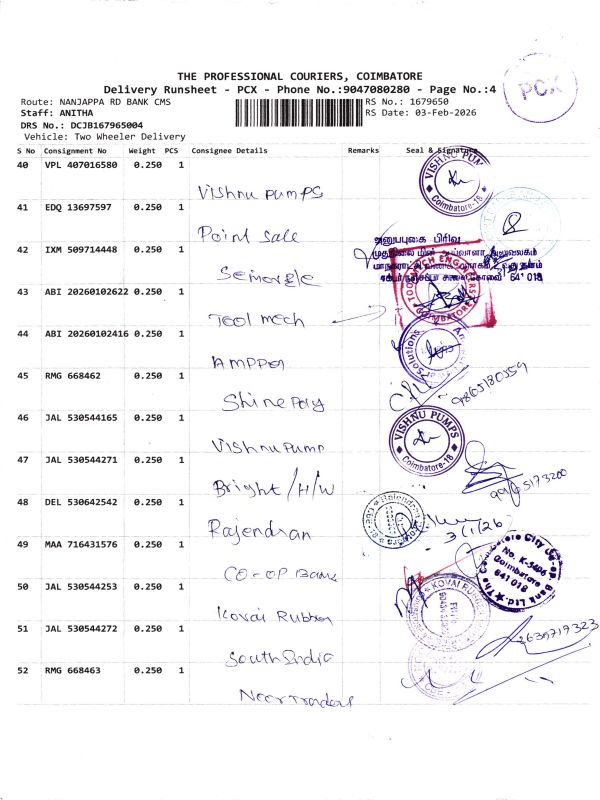 THE PROFESSIONAL COURIERS, COIMBATORE
Delivery Runsheet - PCX - Phone No.:9047080280 - Page No.:4
PCX
Route: NANJAPPA RD BANK CMS
RS No.: 1679650
Staff: ANITHA
RS Date: 03-Feb-2026
DRS No.: DCJB167965004
Vehicle: Two Wheeler Delivery
S No Consignment No Weight PCS Consignee Details Remarks Seal & Signature
40 VPL 407016580 0.250 1
Vishnu pumps
VISHNU PUMPS Coimbatore-18
41 EDQ 13697597 0.250 1
Point sale
அனுப்புகை பிரிவு
42 IXM 509714448 0.250 1
641 018
43 ABI 20260102622 0.250 1
Tool mech
COIMBATORE
44 ABI 20260102416 0.250 1
Solutions
45 RMG 668462 0.250 1
Shine poly
9865180559
46 JAL 530544165 0.250 1
Vishnu pump
VISHNU PUMPS Coimbatore-18
47 JAL 530544271 0.250 1
Bright /H/W
48 DEL 530642542 0.250 1
Rajendran
Rajendran
3/1/26
49 MAA 716431576 0.250 1
CO-OP Bank
The Coimbatore City Co-op. Bank Ltd.
No. K-5404
Coimbatore
641 018
50 JAL 530544253 0.250 1
Kovai Rubber
KOVAI RUBBER
51 JAL 530544272 0.250 1
South India
52 RMG 668463 0.250 1
Neer Traders